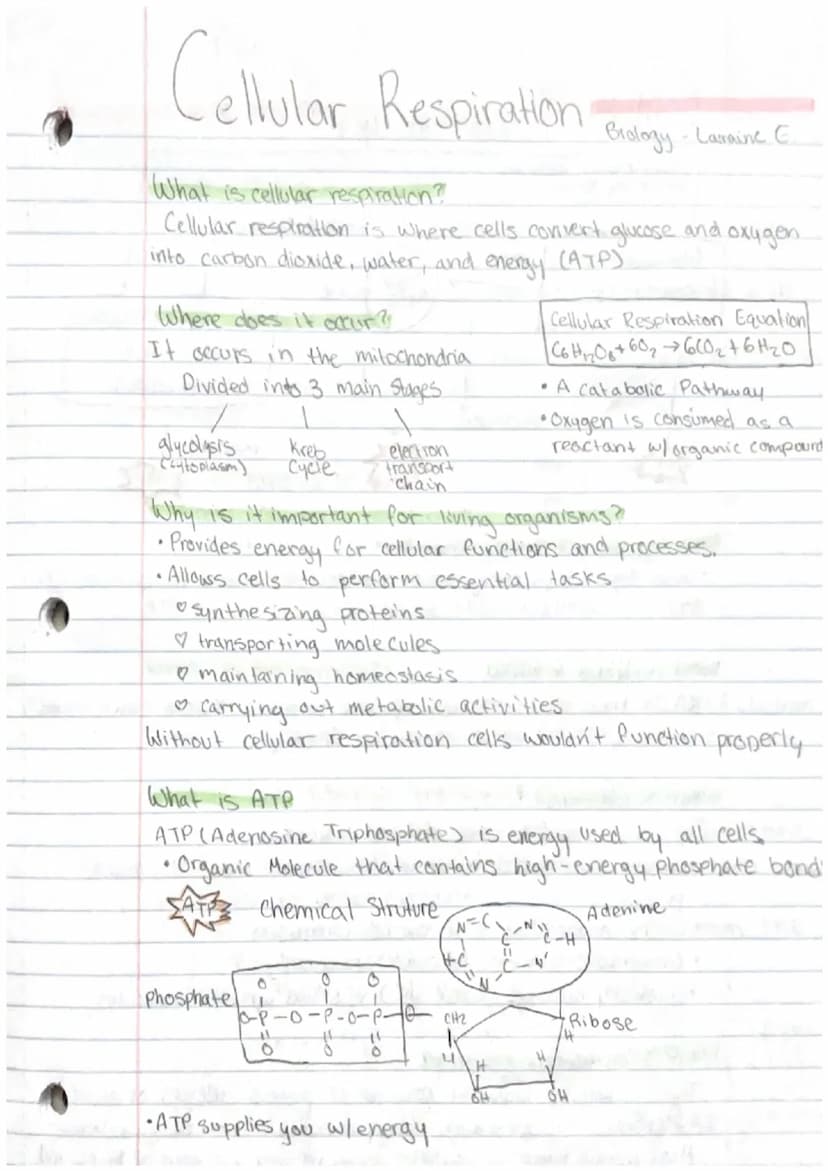 Cellular Respiration
Biology - Larraine E.
What is cellular respiration?
Cellular respiration is where cells convert glucose and oxygen
into carbon dioxide, water, and energy (ATP)
Where does it occur?
It occurs in the mitochondria
Divided into 3 main stages
glycolysis
(cytoplasm)
Kreb
Cycle
electron
transport
chain
Cellular Respiration Equation
C6H12O6+6O2→6CO2+6H2O
• A catabolic Pathway
• Oxygen is consumed as a
reactant w/organic compound
Why is it important for living organisms?
• Provides energy for cellular functions and processes.
• Allows cells to perform essential tasks
♡ synthesizing proteins
♡ transporting molecules
♡ maintaining homeostasis
♡ carrying out metabolic activities
Without cellular respiration cells wouldn't function properly
What is ATP
ATP (Adenosine Triphosphate) is energy used by all cells
• Organic Molecule that contains high-energy phosphate bond
ATP Chemical Struture
Adenine
N=C C-N C-H
HC N C-N
phosphate
O O O
O-P-O-P-O-P-O- CH2
O O O
Ribose
H H
H H
OH OH
• ATP supplies you w/energy